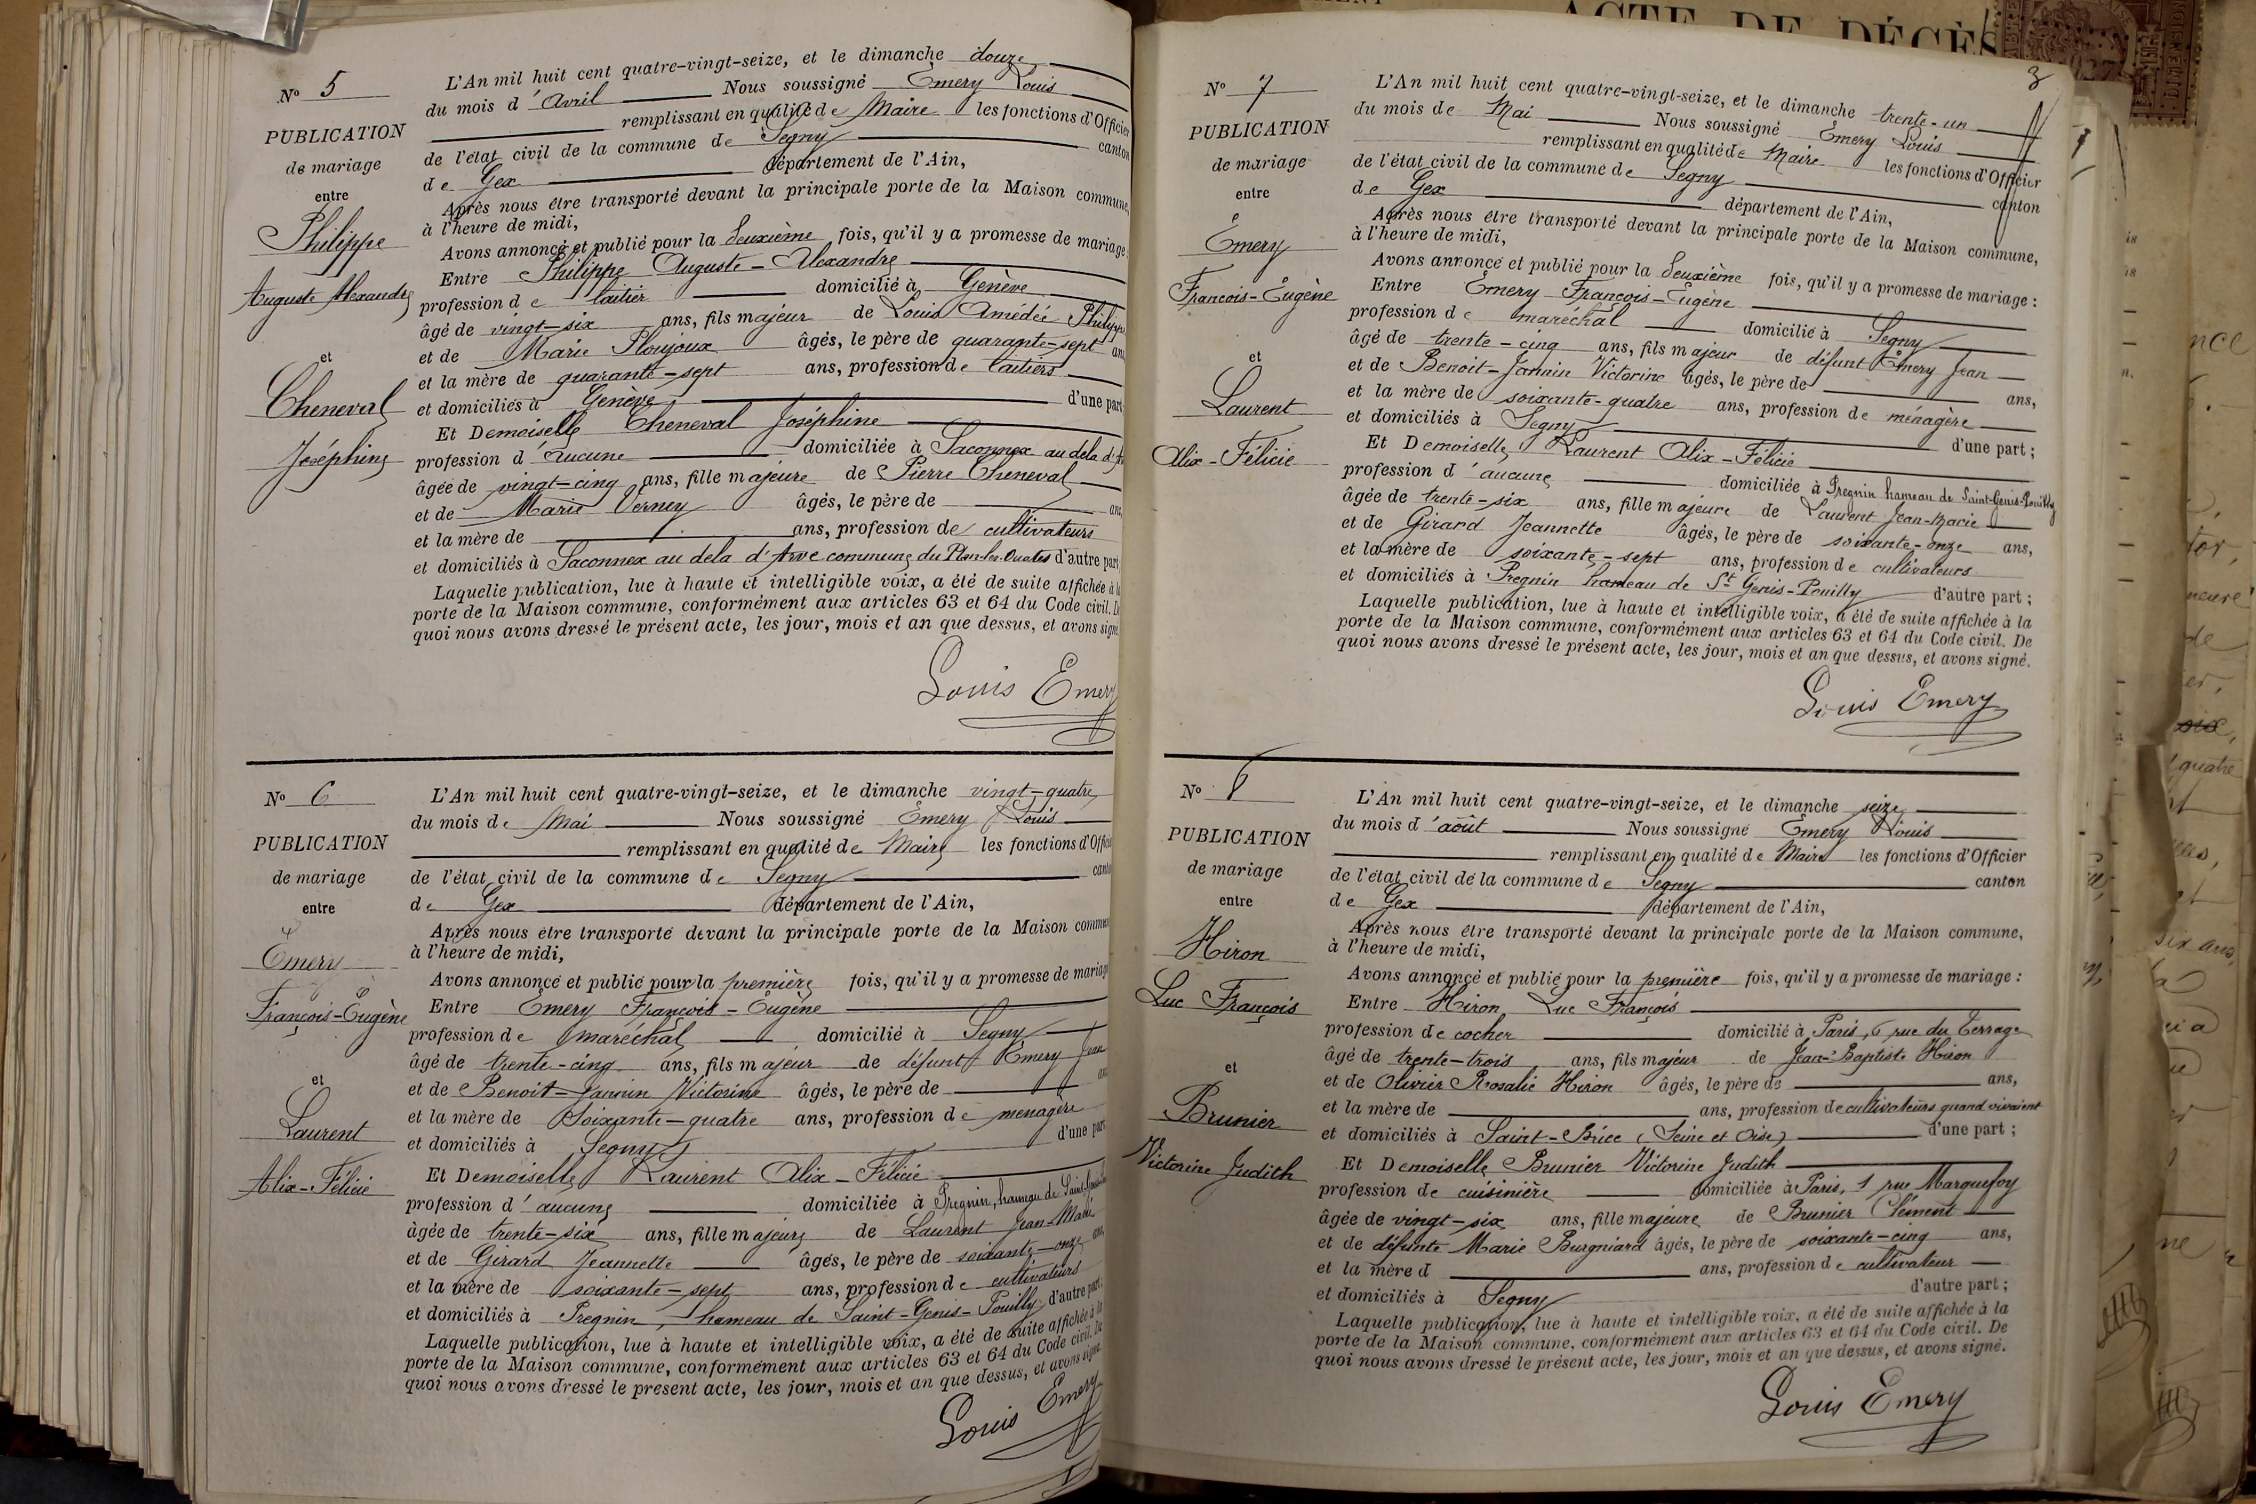 ACTE DE DÉCÈS
N° 5
PUBLICATION
de mariage
entre
Philippe
Auguste Alexandre
et
Cheneval
Joséphine
L'An mil huit cent quatre-vingt-seize, et le dimanche douze
du mois d'Avril Nous soussigné Emery Louis
remplissant en qualité de Maire les fonctions d'Officier
de l'état civil de la commune de Segny canton
de Gex département de l'Ain,
Après nous être transporté devant la principale porte de la Maison commune,
à l'heure de midi,
Avons annoncé et publié pour la deuxième fois, qu'il y a promesse de mariage :
Entre Philippe Auguste-Alexandre
profession de laitier domicilié à Genève
âgé de vingt-six ans, fils majeur de Louis Amédée Philippe
et de Marie Ploujoux âgés, le père de quarante-sept ans
et la mère de quarante-sept ans, profession de laitiers
et domiciliés à Genève d'une part
Et Demoiselle Cheneval Joséphine
profession d'aucune domiciliée à Saconnex au dela d'Ar
âgée de vingt-cinq ans, fille majeure de Pierre Cheneval
et de Marie Verney âgés, le père de ans,
et la mère de ans, profession de cultivateurs
et domiciliés à Saconnex au dela d'Arve commune du Plan-les-Ouates d'autre part
Laquelle publication, lue à haute et intelligible voix, a été de suite affichée à la
porte de la Maison commune, conformément aux articles 63 et 64 du Code civil. De
quoi nous avons dressé le présent acte, les jour, mois et an que dessus, et avons signé.
Louis Emery
N° 6
PUBLICATION
de mariage
entre
Emery
François-Eugène
et
Laurent
Alix-Félicie
L'An mil huit cent quatre-vingt-seize, et le dimanche vingt-quatre
du mois de Mai Nous soussigné Emery Louis
remplissant en qualité de Maire les fonctions d'Officier
de l'état civil de la commune de Segny canton
de Gex département de l'Ain,
Après nous être transporté devant la principale porte de la Maison commune
à l'heure de midi,
Avons annoncé et publié pour la première fois, qu'il y a promesse de mariage
Entre Emery François-Eugène
profession de maréchal domicilié à Segny
âgé de trente-cinq ans, fils majeur de défunt Emery Jean
et de Benoit-Jannin Victorine âgés, le père de ans
et la mère de Soixante-quatre ans, profession de ménagère
et domiciliés à Segny d'une part
Et Demoiselle Laurent Alix-Félicie
profession d'aucune domiciliée à Pregnin, hameau de Saint-Genis
âgée de trente-six ans, fille majeure de Laurent Jean-Marie
et de Girard Jeannette âgés, le père de soixante-onze ans,
et la mère de soixante-sept ans, profession de cultivateurs
et domiciliés à Pregnin, hameau de Saint-Genis-Pouilly d'autre part
Laquelle publication, lue à haute et intelligible voix, a été de suite affichée à la
porte de la Maison commune, conformément aux articles 63 et 64 du Code civil. De
quoi nous avons dressé le présent acte, les jour, mois et an que dessus, et avons signé.
Louis Emery
3
N° 7
PUBLICATION
de mariage
entre
Emery
François-Eugène
et
Laurent
Alix-Félicie
L'An mil huit cent quatre-vingt-seize, et le dimanche trente-un
du mois de Mai Nous soussigné Emery Louis
remplissant en qualité de Maire les fonctions d'Officier
de l'état civil de la commune de Segny canton
de Gex département de l'Ain,
Après nous être transporté devant la principale porte de la Maison commune,
à l'heure de midi,
Avons annoncé et publié pour la deuxième fois, qu'il y a promesse de mariage :
Entre Emery François-Eugène
profession de maréchal domicilié à Segny
âgé de trente-cinq ans, fils majeur de défunt Emery Jean
et de Benoit-Jannin Victorine âgés, le père de ans,
et la mère de soixante-quatre ans, profession de ménagère
et domiciliés à Segny d'une part ;
Et Demoiselle Laurent Alix-Félicie
profession d'aucune domiciliée à Pregnin hameau de Saint-Genis-Pouilly
âgée de trente-six ans, fille majeure de Laurent Jean-Marie
et de Girard Jeannette âgés, le père de soixante-onze ans,
et la mère de soixante-sept ans, profession de cultivateurs
et domiciliés à Pregnin hameau de St Genis-Pouilly d'autre part ;
Laquelle publication, lue à haute et intelligible voix, a été de suite affichée à la
porte de la Maison commune, conformément aux articles 63 et 64 du Code civil. De
quoi nous avons dressé le présent acte, les jour, mois et an que dessus, et avons signé.
Louis Emery
N° 8
PUBLICATION
de mariage
entre
Hiron
Luc François
et
Brunier
Victorine Judith
L'An mil huit cent quatre-vingt-seize, et le dimanche seize
du mois d'août Nous soussigné Emery Louis
remplissant en qualité de Maire les fonctions d'Officier
de l'état civil de la commune de Segny canton
de Gex département de l'Ain,
Après nous être transporté devant la principale porte de la Maison commune,
à l'heure de midi,
Avons annoncé et publié pour la première fois, qu'il y a promesse de mariage :
Entre Hiron Luc François
profession de cocher domicilié à Paris, 6, rue du Terrage
âgé de trente-trois ans, fils majeur de Jean-Baptiste Hiron
et de Olivier Rosalie Hiron âgés, le père de ans,
et la mère de ans, profession de cultivateurs quand vivaient
et domiciliés à Saint-Brice (Seine et Oise) d'une part ;
Et Demoiselle Brunier Victorine Judith
profession de cuisinière domiciliée à Paris, 1 rue Marquefoy
âgée de vingt-six ans, fille majeure de Brunier Clément
et de défunte Marie Burgniard âgés, le père de soixante-cinq ans,
et la mère d ans, profession de cultivateur
et domiciliés à Segny d'autre part ;
Laquelle publication, lue à haute et intelligible voix, a été de suite affichée à la
porte de la Maison commune, conformément aux articles 63 et 64 du Code civil. De
quoi nous avons dressé le présent acte, les jour, mois et an que dessus, et avons signé.
Louis Emery